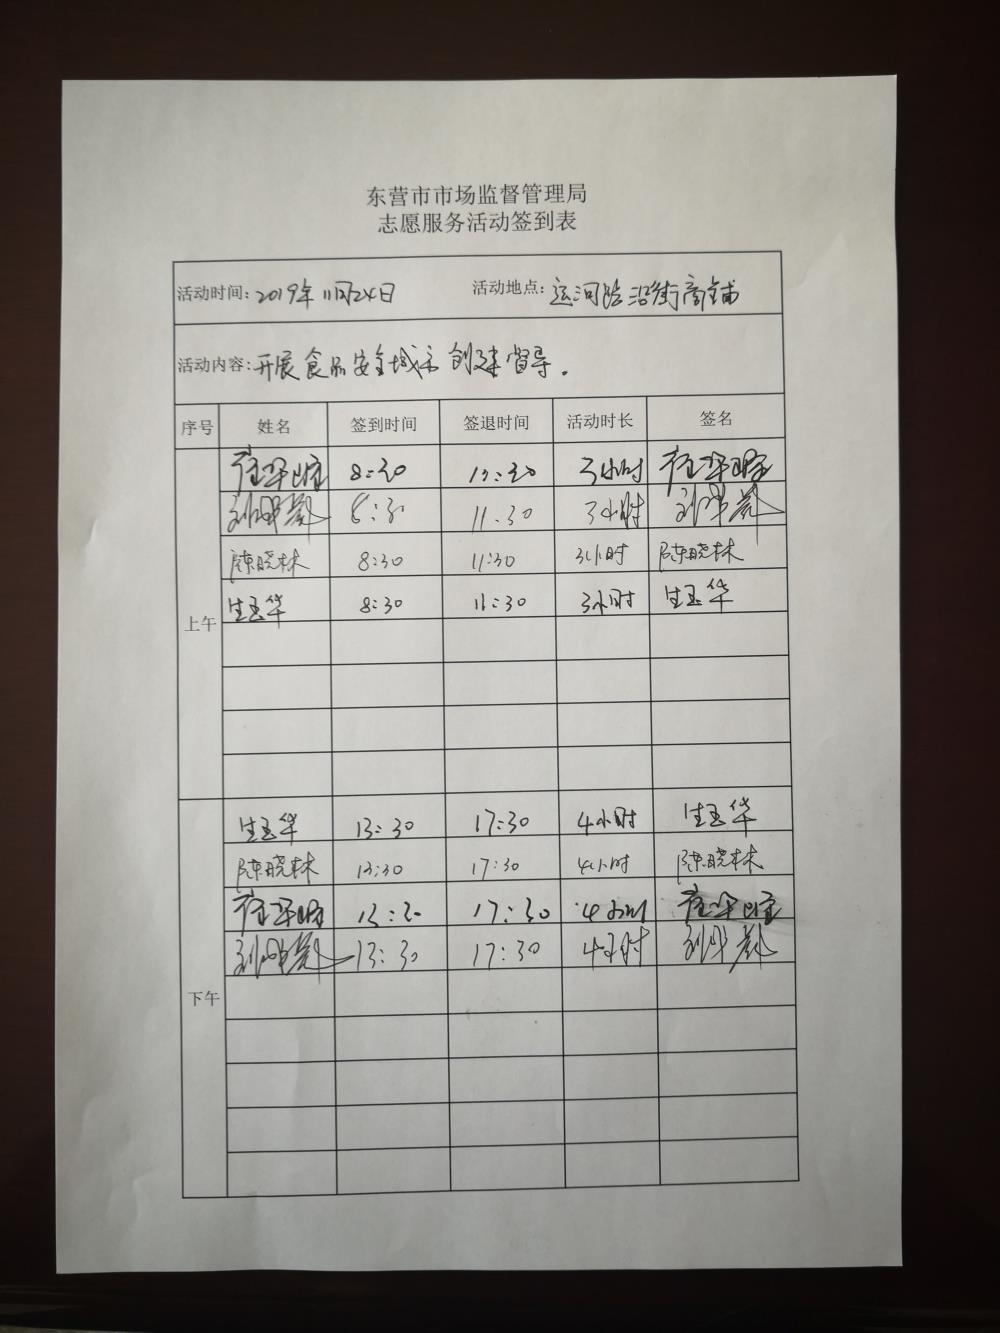 东营市市场监督管理局
志愿服务活动签到表
活动时间: 2019年11月24日 活动地点: 运河路沿街商铺
活动内容: 开展食品安全城市创建督导。
序号 姓名 签到时间 签退时间 活动时长 签名
上午
8:30 11:30 3小时
8:30 11:30 3小时
陈晓林 8:30 11:30 3小时 陈晓林
生玉华 8:30 11:30 3小时 生玉华
下午
生玉华 13:30 17:30 4小时 生玉华
陈晓林 13:30 17:30 4小时 陈晓林
13:30 17:30 4小时
13:30 17:30 4小时